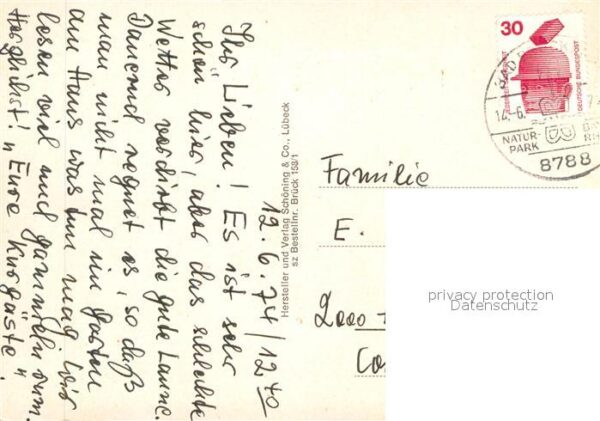 12.6.74/12⁴⁰
Ihr Lieben! Es ist sehr
schön hier, aber das schlechte
Wetter verdirbt die gute Laune.
Dauernd regnet es, so daß
man nicht mal im Garten
am Haus was tun mag. Wir
lesen viel und gammeln rum.
Herzlichst! "Eure Kurgäste".
Hersteller und Verlag Schöning & Co., Lübeck
sz Bestellnr. Brück 158/1
30
DEUTSCHE BUNDESPOST
14.-6.
NATUR-
PARK
8788
Familie
E.
2000
privacy protection
Datenschutz